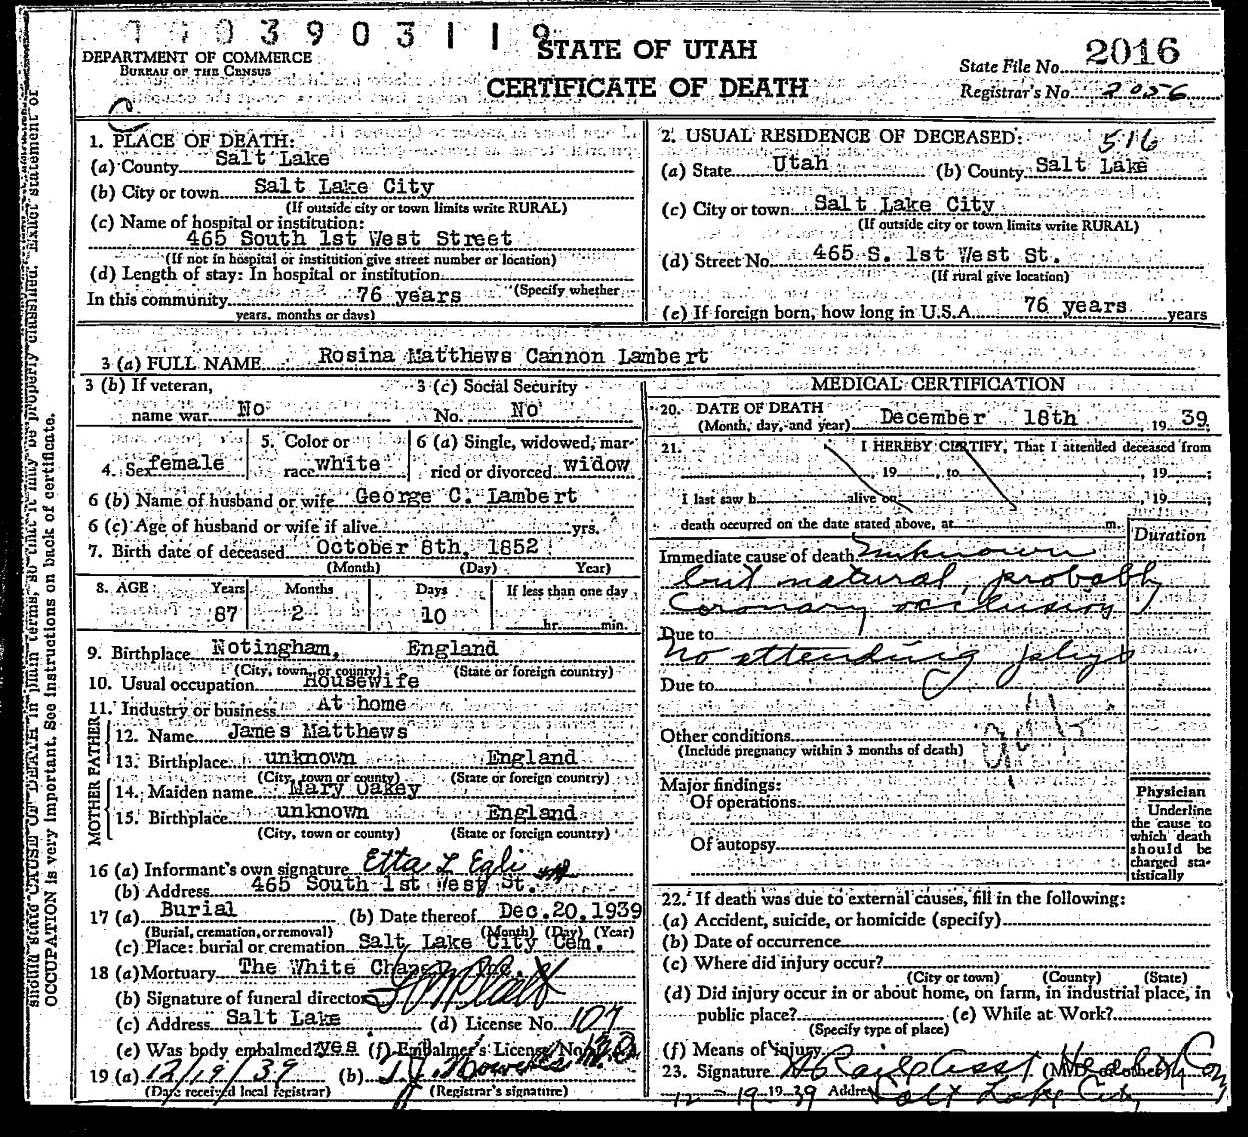 390311 9
STATE OF UTAH
CERTIFICATE OF DEATH
DEPARTMENT OF COMMERCE
BUREAU OF THE CENSUS
State File No. 2016
Registrar's No. 2056
1. PLACE OF DEATH:
(a) County Salt Lake
(b) City or town Salt Lake City
(If outside city or town limits write RURAL)
(c) Name of hospital or institution:
465 South 1st West Street
(If not in hospital or institution give street number or location)
(d) Length of stay: In hospital or institution
(Specify whether
In this community 76 years
years, months or days)
2. USUAL RESIDENCE OF DECEASED: 516
(a) State Utah (b) County Salt Lake
(c) City or town Salt Lake City
(If outside city or town limits write RURAL)
(d) Street No. 465 S. 1st West St.
(If rural give location)
(e) If foreign born, how long in U.S.A. 76 years years
3 (a) FULL NAME Rosina Matthews Cannon Lambert
3 (b) If veteran,
name war No
3 (c) Social Security
No. No
4. Sex female
5. Color or
race white
6 (a) Single, widowed, mar-
ried or divorced widow
6 (b) Name of husband or wife George C. Lambert
6 (c) Age of husband or wife if alive yrs.
7. Birth date of deceased October 8th, 1852
(Month) (Day) Year)
8. AGE: Years Months Days If less than one day
87 2 10 hr. min.
9. Birthplace Notingham, England
(City, town, or county) (State or foreign country)
10. Usual occupation Housewife
11. Industry or business At home
FATHER
12. Name James Matthews
13. Birthplace unknown England
(City, town or county) (State or foreign country)
MOTHER
14. Maiden name Mary Oakey
15. Birthplace unknown England
(City, town or county) (State or foreign country)
16 (a) Informant's own signature Etta L Egli
(b) Address 465 South 1st West St.
17 (a) Burial (b) Date thereof Dec. 20, 1939
(Burial, cremation, or removal) (Month) (Day) (Year)
(c) Place: burial or cremation Salt Lake City Cem.
18 (a) Mortuary The White Chapel Inc.
(b) Signature of funeral director
(c) Address Salt Lake (d) License No. 107
(e) Was body embalmed? yes (f) Embalmer's License No.
19 (a) 12/19/39 (b) T. J.
(Date received local registrar) (Registrar's signature)
MEDICAL CERTIFICATION
20. DATE OF DEATH
(Month, day, and year) December 18th, 1939
21. I HEREBY CERTIFY, That I attended deceased from
, 19 , to , 19 ;
I last saw h alive on , 19 ;
death occurred on the date stated above, at m.
Duration
Immediate cause of death Unknown
but natural, probably
Coronary occlusion
Due to
No attending phys
Due to
Other conditions
(Include pregnancy within 3 months of death)
Major findings:
Of operations
Of autopsy
Physician
Underline
the cause to
which death
should be
charged sta-
tistically
22. If death was due to external causes, fill in the following:
(a) Accident, suicide, or homicide (specify)
(b) Date of occurrence
(c) Where did injury occur?
(City or town) (County) (State)
(d) Did injury occur in or about home, on farm, in industrial place, in
public place? (e) While at Work?
(Specify type of place)
(f) Means of injury
23. Signature Asst Health Com
12-19-1939 Address Salt Lake City
should state CAUSE OF DEATH in plain terms, so that it may be properly classified. Exact statement of
OCCUPATION is very important. See instructions on back of certificate.